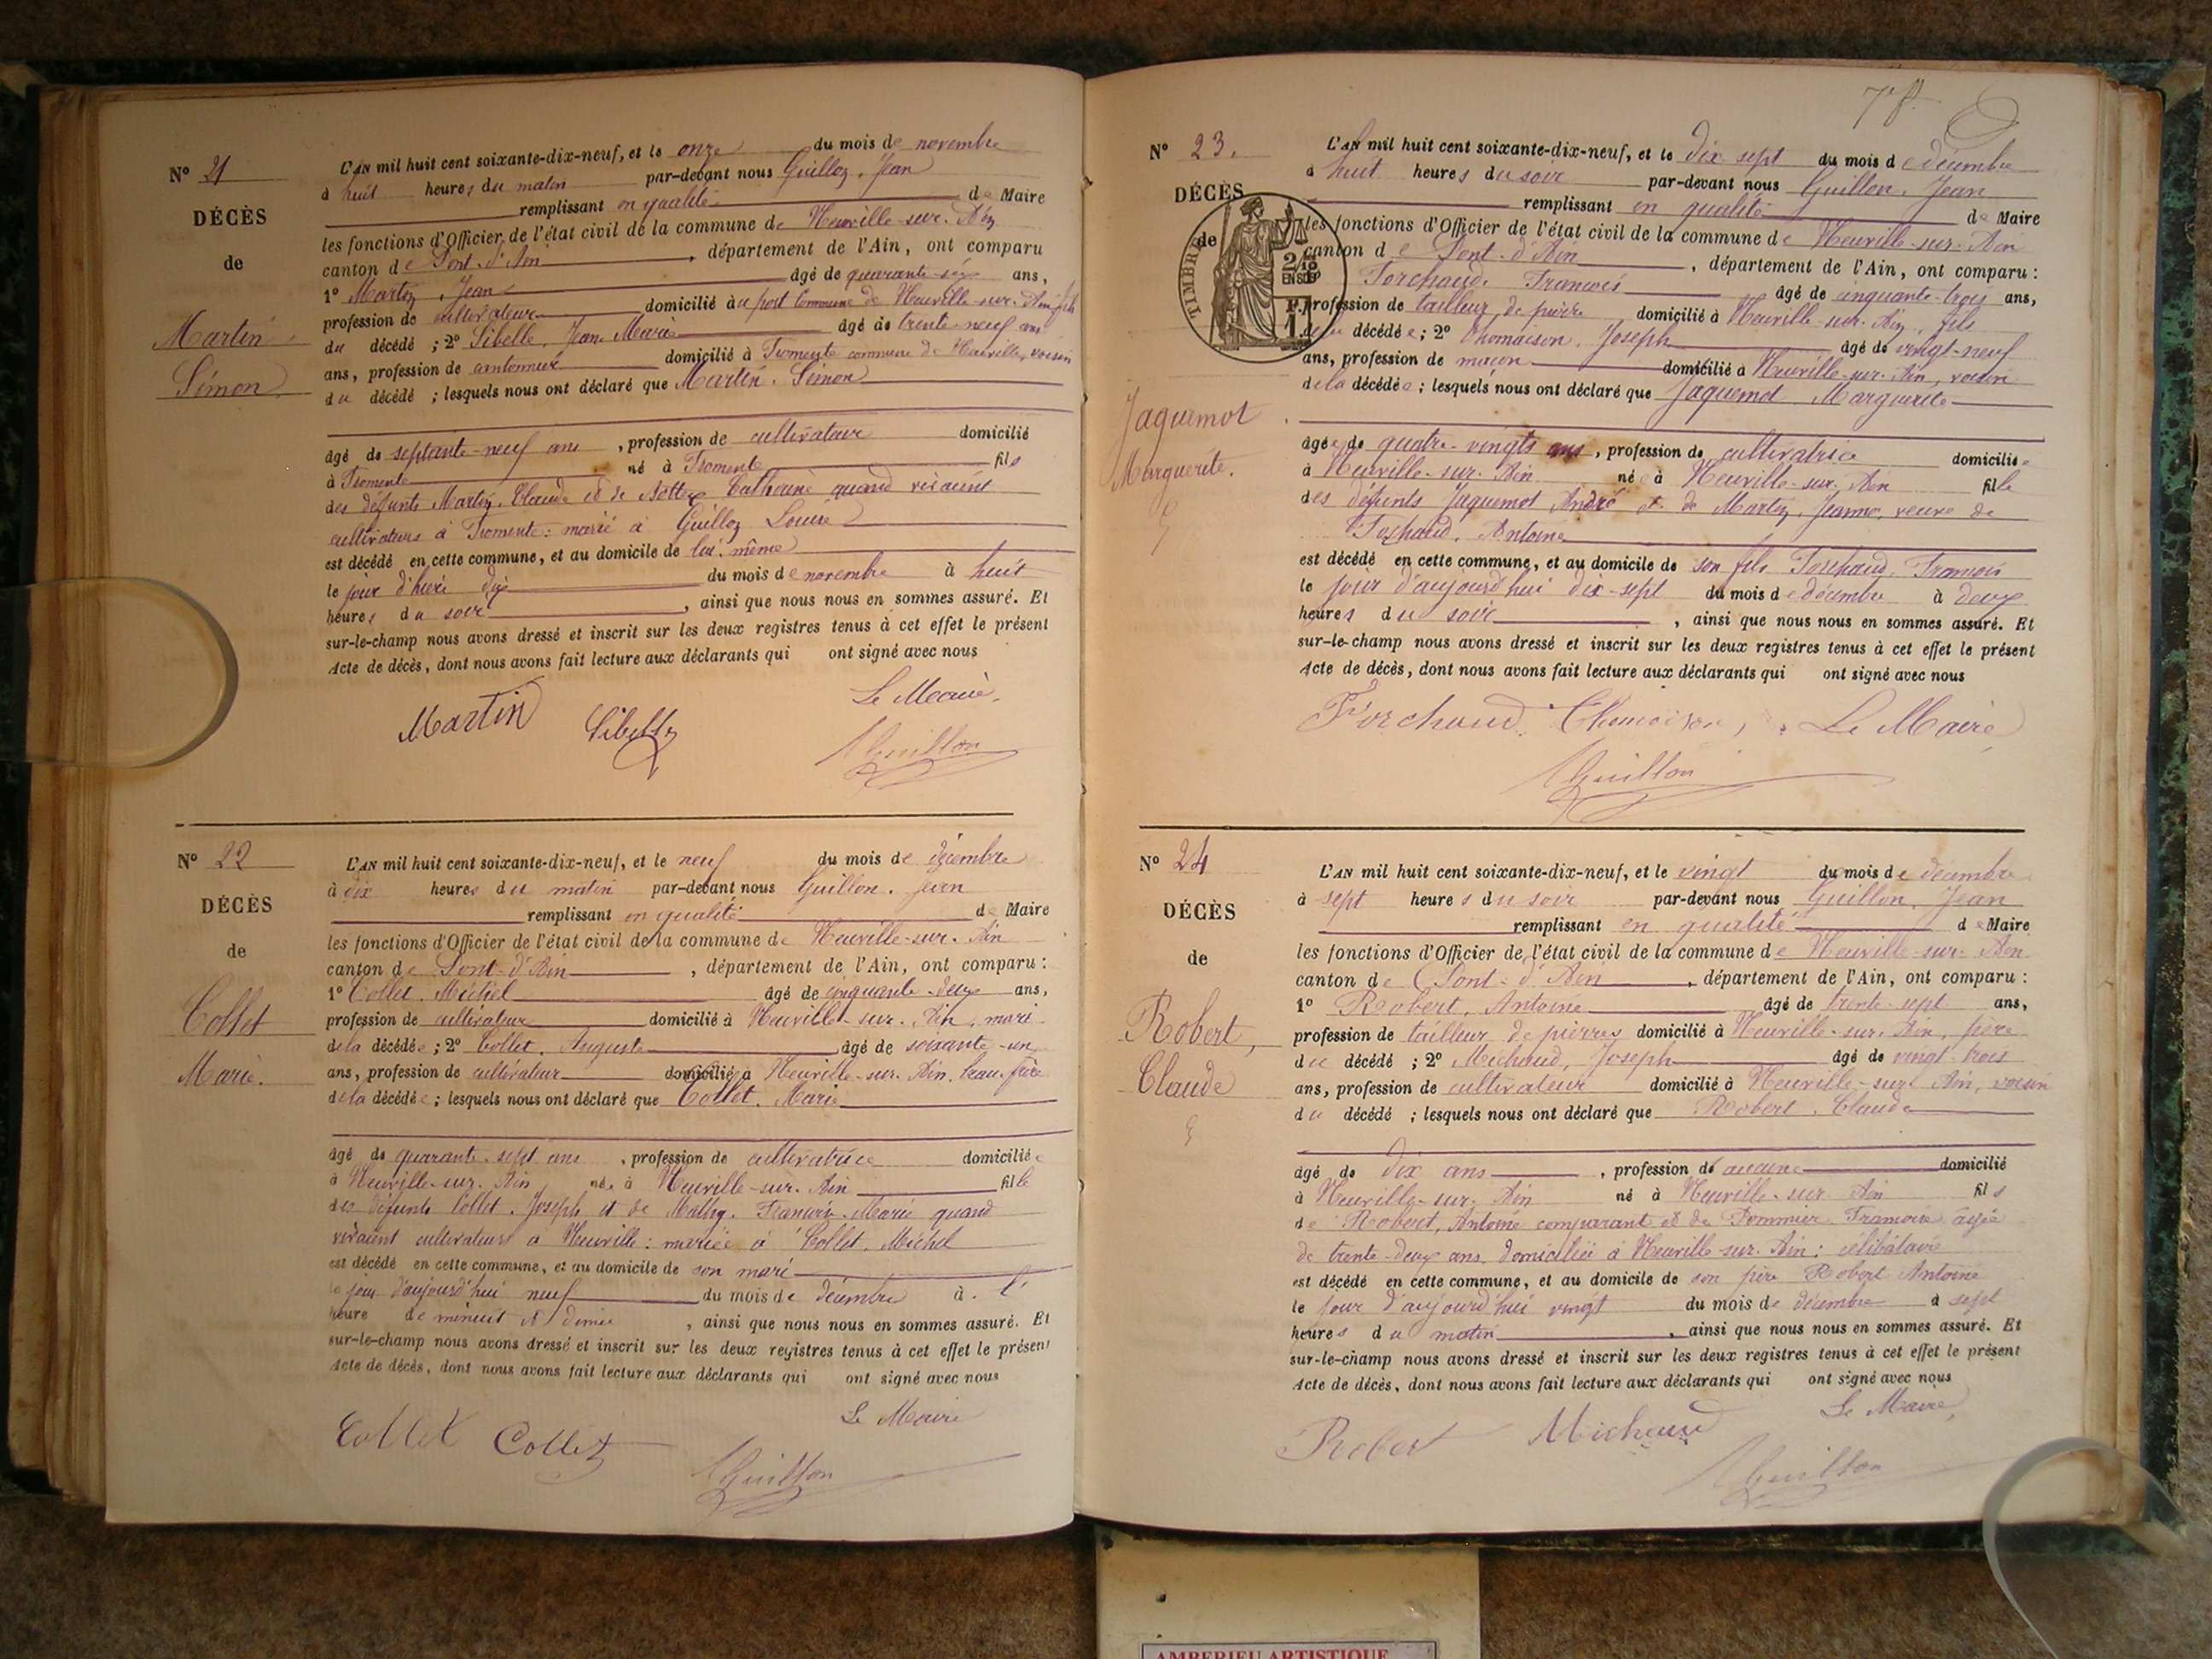 N° 21
DÉCÈS
de
Martin
Simon
L'AN mil huit cent soixante-dix-neuf, et le onze du mois de novembre
à huit heures du matin par-devant nous Guillon, Jean
remplissant en qualité de Maire
les fonctions d'Officier de l'état civil de la commune de Neuville-sur-Ain
canton de Pont-d'Ain, département de l'Ain, ont comparu
1° Martin, Jean âgé de quarante-six ans,
profession de cultivateur domicilié au port Commune de Neuville-sur-Ain fils
du décédé ; 2° Sibelle, Jean Marie âgé de trente-neuf ans
ans, profession de cantonnier domicilié à Fromente commune de Neuville, voisin
du décédé ; lesquels nous ont déclaré que Martin, Simon
âgé de septante-neuf ans, profession de cultivateur domicilié
à Fromente né à Fromente fils
des défunts Martin, Claude et de Catherine quand vivaient
cultivateurs à Fromente : marié à Guillon Louise
est décédé en cette commune, et au domicile de lui-même
le jour d'hier dix du mois de novembre à huit
heures du soir, ainsi que nous nous en sommes assuré. Et
sur-le-champ nous avons dressé et inscrit sur les deux registres tenus à cet effet le présent
Acte de décès, dont nous avons fait lecture aux déclarants qui ont signé avec nous
Le Maire,
Martin Sibelle
Guillon
N° 22
DÉCÈS
de
Collet
Marie.
L'AN mil huit cent soixante-dix-neuf, et le neuf du mois de décembre
à dix heures du matin par-devant nous Guillon, Jean
remplissant en qualité de Maire
les fonctions d'Officier de l'état civil de la commune de Neuville-sur-Ain
canton de Pont-d'Ain, département de l'Ain, ont comparu :
1° Collet, Michel âgé de cinquante-deux ans,
profession de cultivateur domicilié à Neuville-sur-Ain, mari
de la décédée ; 2° Collet, Auguste âgé de soixante-un
ans, profession de cultivateur domicilié à Neuville-sur-Ain, beau-frère
de la décédée ; lesquels nous ont déclaré que Collet, Marie
âgé de quarante-sept ans, profession de cultivatrice domiciliée
à Neuville-sur-Ain née à Neuville-sur-Ain fille
des défunts Collet, Joseph et de Mathy, Françoise Marie quand
vivaient cultivateurs à Neuville : mariée à Collet, Michel
est décédé en cette commune, et au domicile de son mari
le jour d'aujourd'hui neuf du mois de décembre à l'
heure de minuit et demie, ainsi que nous nous en sommes assuré. Et
sur-le-champ nous avons dressé et inscrit sur les deux registres tenus à cet effet le présent
Acte de décès, dont nous avons fait lecture aux déclarants qui ont signé avec nous
Le Maire
Collet Collet
Guillon
78
N° 23.
DÉCÈS
de
TIMBRE
2/10
EN SUS
1
Jaquemot
Marguerite.
L'AN mil huit cent soixante-dix-neuf, et le dix-sept du mois de décembre
à huit heures du soir par-devant nous Guillon, Jean
remplissant en qualité de Maire
les fonctions d'Officier de l'état civil de la commune de Neuville-sur-Ain
canton de Pont-d'Ain, département de l'Ain, ont comparu :
Forchaud, François âgé de cinquante-trois ans,
profession de tailleur de pierre domicilié à Neuville-sur-Ain, fils
décédée ; 2° Thomaison, Joseph âgé de vingt-neuf
ans, profession de maçon domicilié à Neuville-sur-Ain, voisin
de la décédée ; lesquels nous ont déclaré que Jaquemot Marguerite
âgée de quatre-vingts ans, profession de cultivatrice domiciliée
à Neuville-sur-Ain née à Neuville-sur-Ain fille
des défunts Jaquemot André et de Martin, Jeanne, veuve de
Forchaud, Antoine
est décédé en cette commune, et au domicile de son fils Forchaud, François
le jour d'aujourd'hui dix-sept du mois de décembre à deux
heures du soir, ainsi que nous nous en sommes assuré. Et
sur-le-champ nous avons dressé et inscrit sur les deux registres tenus à cet effet le présent
Acte de décès, dont nous avons fait lecture aux déclarants qui ont signé avec nous
Forchaud Thomaison, Le Maire
Guillon
N° 24
DÉCÈS
de
Robert,
Claude
L'AN mil huit cent soixante-dix-neuf, et le vingt du mois de décembre
à sept heures du soir par-devant nous Guillon, Jean
remplissant en qualité de Maire
les fonctions d'Officier de l'état civil de la commune de Neuville-sur-Ain
canton de Pont-d'Ain, département de l'Ain, ont comparu :
1° Robert, Antoine âgé de trente-sept ans,
profession de tailleur de pierres domicilié à Neuville-sur-Ain, père
du décédé ; 2° Michaud, Joseph âgé de vingt-trois
ans, profession de cultivateur domicilié à Neuville-sur-Ain, voisin
du décédé ; lesquels nous ont déclaré que Robert, Claude
âgé de dix ans, profession de aucune domicilié
à Neuville-sur-Ain né à Neuville-sur-Ain fils
de Robert, Antoine comparant et de Pommier Françoise âgée
de trente-deux ans, domiciliée à Neuville-sur-Ain : célibataire
est décédé en cette commune, et au domicile de son père Robert Antoine
le jour d'aujourd'hui vingt du mois de décembre à sept
heures du matin, ainsi que nous nous en sommes assuré. Et
sur-le-champ nous avons dressé et inscrit sur les deux registres tenus à cet effet le présent
Acte de décès, dont nous avons fait lecture aux déclarants qui ont signé avec nous
Le Maire,
Robert Michaud
Guillon
AMBERIEU ARTISTIQUE